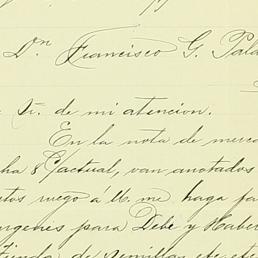 Dn Francisco G. Pala
de mi atencion.
En la nota de merca
ha 8 C/actual, van anotados
tos ruego á U. me haga pa
argenes para Debe y Haber
de semillas etc etc